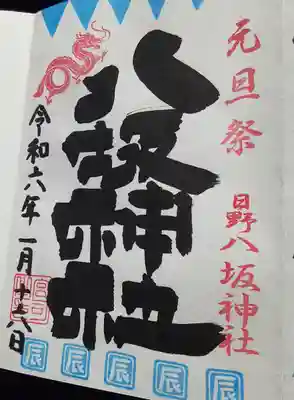 元旦祭 日野八坂神社
八坂神社
令和六年一月十六日
辰 辰 辰 辰 辰